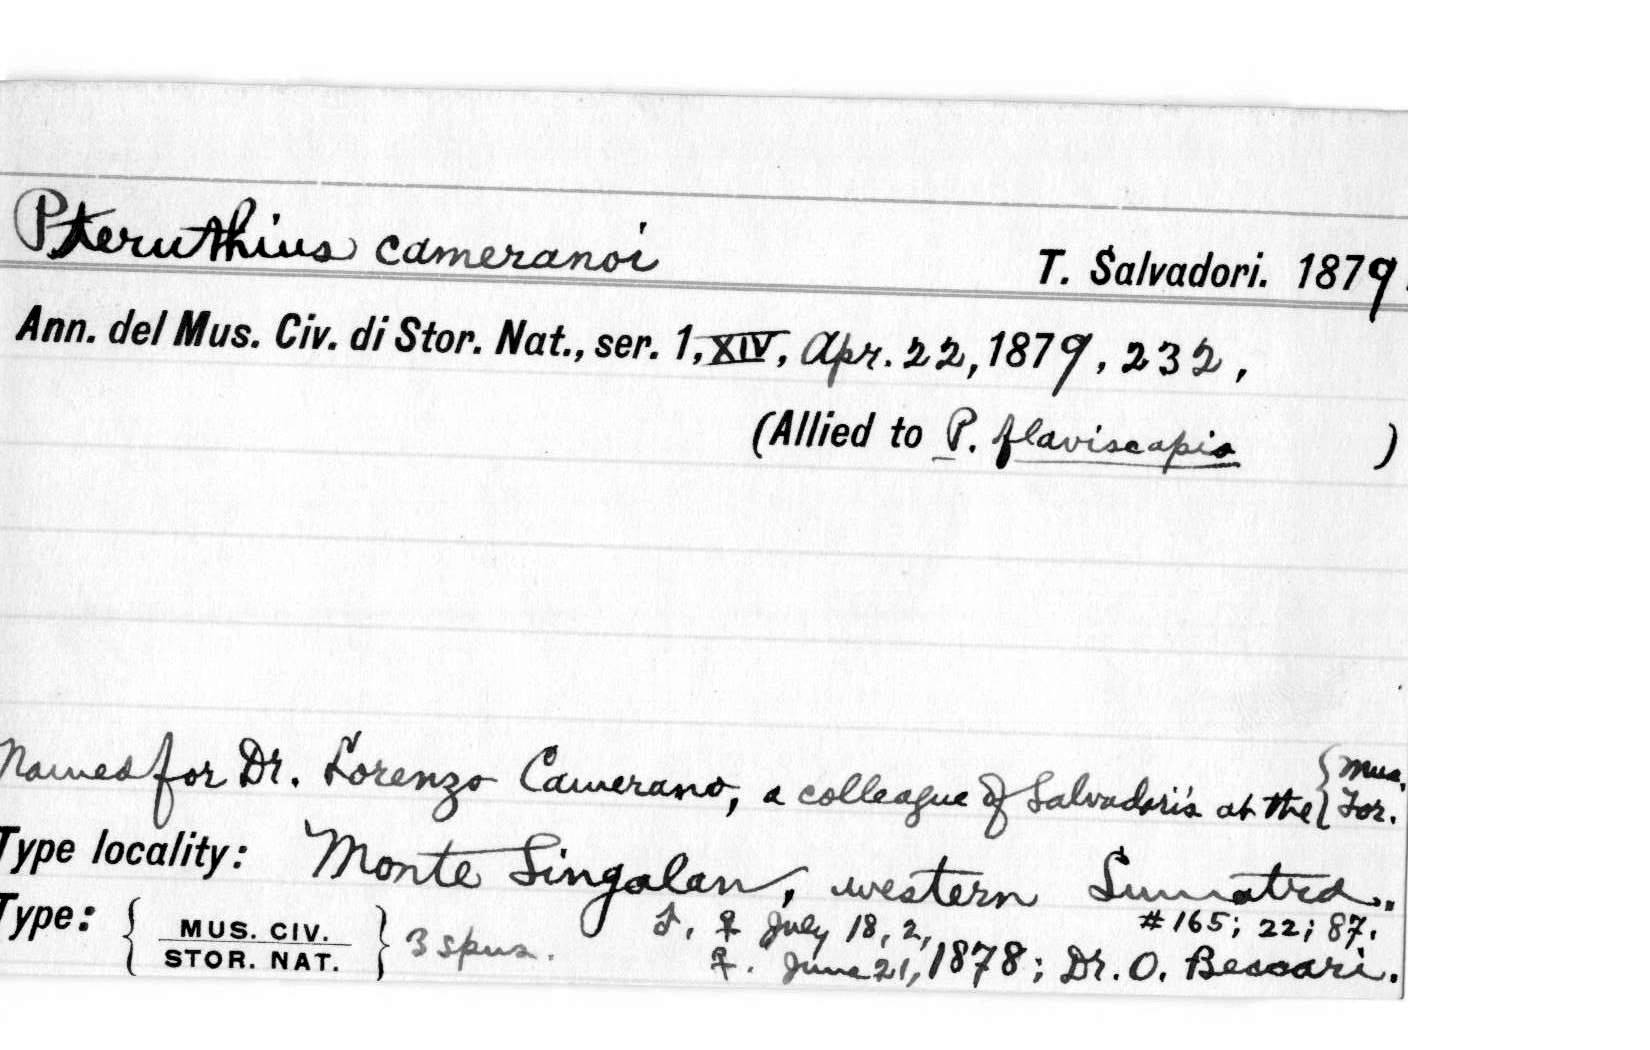 Pteruthius cameranoi T. Salvadori. 1879.
Ann. del Mus. Civ. di Stor. Nat., ser. 1, XIV, Apr. 22, 1879, 232,
(Allied to P. flaviscapis )
Named for Dr. Lorenzo Camerano, a colleague of Salvadori's at the { Mus. Tor.
Type locality: Monte Singalan, western Sumatra.
Type: { MUS. CIV. STOR. NAT. } 3 spns. ♀ July 18, 2, #165; 22; 87.
♀. June 21, 1878; Dr. O. Beccari.